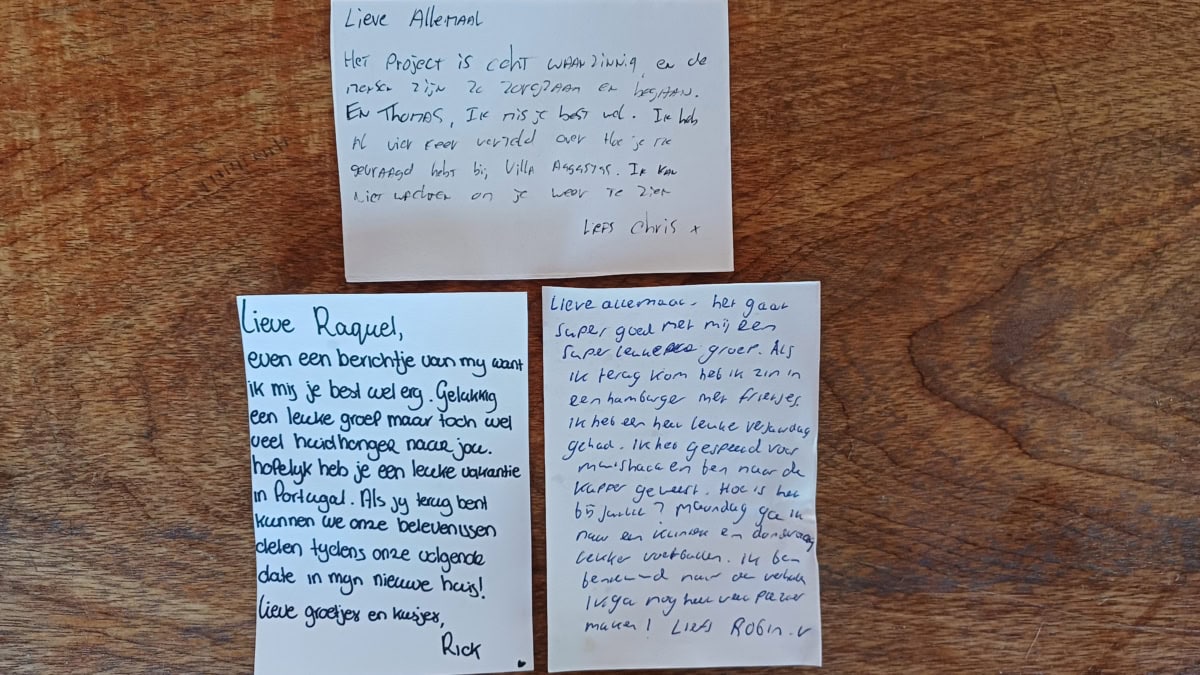 Lieve Allemaal
Het project is echt waanzinnig, en de
mensen zijn zo zorgzaam en begaan.
En Thomas, Ik mis je best wel. Ik heb
al vier keer verteld over hoe je me
gevraagd hebt bij Villa Augustus. Ik kan
niet wachten om je weer te zien
Liefs Chris x
Lieve Raquel,
even een berichtje van my want
ik mis je best wel erg. Gelukkig
een leuke groep maar toch wel
veel huidhonger naar jou.
hopelyk heb je een leuke vakantie
in Portugal. Als jy terug bent
kunnen we onze belevenissen
delen tydens onze volgende
date in myn nieuwe huis!
Lieve groetjes en kusjes,
Rick
Lieve allemaal. het gaat
super goed met mij een
super leuke groep. Als
ik terug kom heb ik zin in
een hamburger met frietjes.
ik heb een heel leuke verjaardag
gehad. ik heb gespeeld voor
en ben naar de
kapper geweest. Hoe is het
bij jullie? Maandag ga ik
naar een en donderdag
lekker voetballen. ik ben
benieuwd naar de verhalen
Ik ga nog heel veel plezier
maken! Liefs Robin.